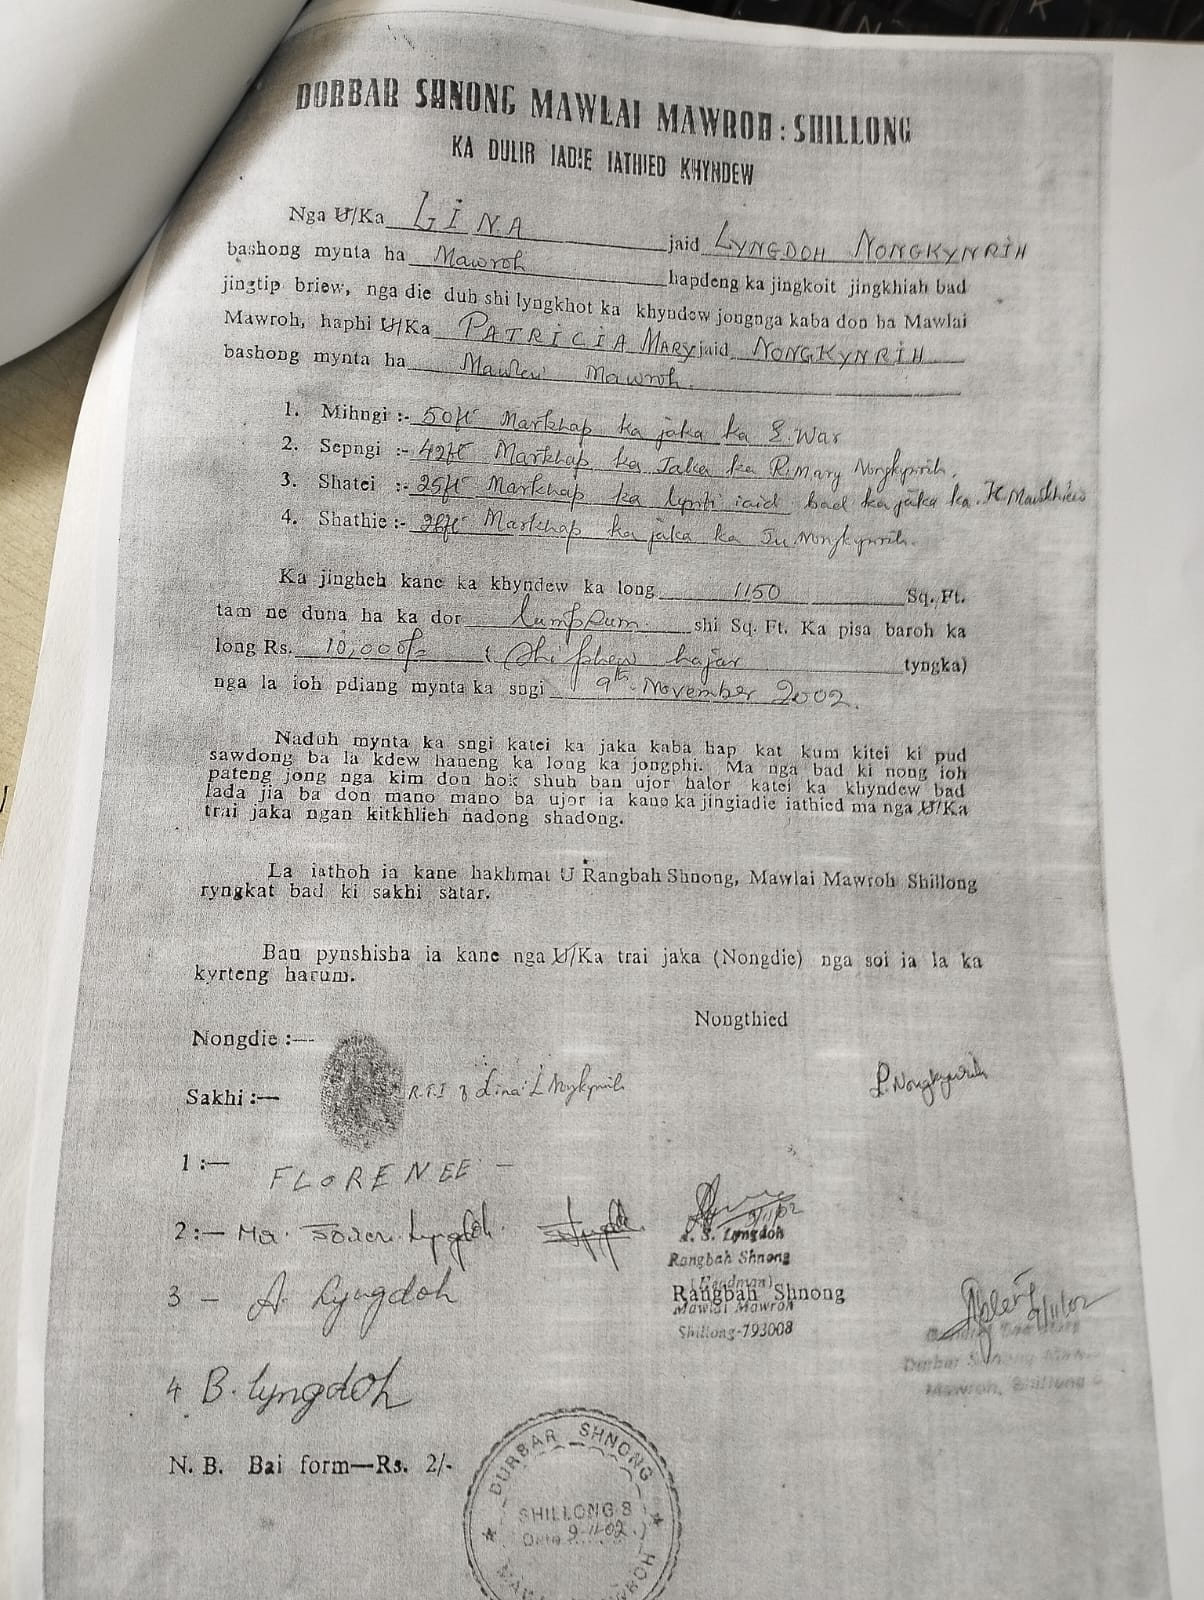 DORBAR SHNONG MAWLAI MAWROH : SHILLONG
KA DULIR IADIE IATHIED KHYNDEW
Nga U/Ka LINA jaid LYNGDOH NONGKYNRIH
bashong mynta ha Mawroh hapdeng ka jingkoit jingkhiah bad
jingtip briew, nga die duh shi lyngkhot ka khyndew jongnga kaba don ha Mawlai
Mawroh, haphi U/Ka PATRICIA MARY jaid NONGKYNRIH
bashong mynta ha Mawroh.
1. Mihngi :- 50ft Markhap ka jaka ka S. War
2. Sepngi :- 42ft Markhap ka Jaka ka R. Mary Nongkynrih.
3. Shatei :- 25ft Markhap ka lynti iaid bad ka jaka ka
4. Shathie :- Markhap ka jaka ka Nongkynrih.
Ka jingheh kane ka khyndew ka long 1150 Sq. Ft.
tam ne duna ha ka dor lumpsum shi Sq. Ft. Ka pisa baroh ka
long Rs. 10,000/= (Shi phew hajar tyngka)
nga la ioh pdiang mynta ka sngi 9th November 2002.
Naduh mynta ka sngi katei ka jaka kaba hap kat kum kitei ki pud
sawdong ba la kdew haneng ka long ka jongphi. Ma nga bad ki nong ioh
pateng jong nga kim don hok shuh ban ujor halor katei ka khyndew bad
lada jia ba don mano mano ba ujor ia kane ka jingiadie iathied ma nga U/Ka
trai jaka ngan kitkhlieh nadong shadong.
La iathoh ia kane hakhmat U Rangbah Shnong, Mawlai Mawroh Shillong
ryngkat bad ki sakhi satar.
Ban pynshisha ia kane nga U/Ka trai jaka (Nongdie) nga soi ia la ka
kyrteng harum.
Nongthied
Nongdie :—
R.T.I of Lina L Nongkynrih
P. Nongkynrih
Sakhi :—
1 :— FLORENEE -
2 :— Lyngdoh
3 - A. Lyngdoh
4 B. Lyngdoh
9/11/02
S. Lyngdoh
Rangbah Shnong
(Headman)
Rangbah Shnong
Mawlai Mawroh
Shillong-793008
9/11/02
Durbar Shnong
Mawroh, Shillong
N. B. Bai form—Rs. 2/-
DURBAR SHNONG
SHILLONG 8
Date 9-11-02